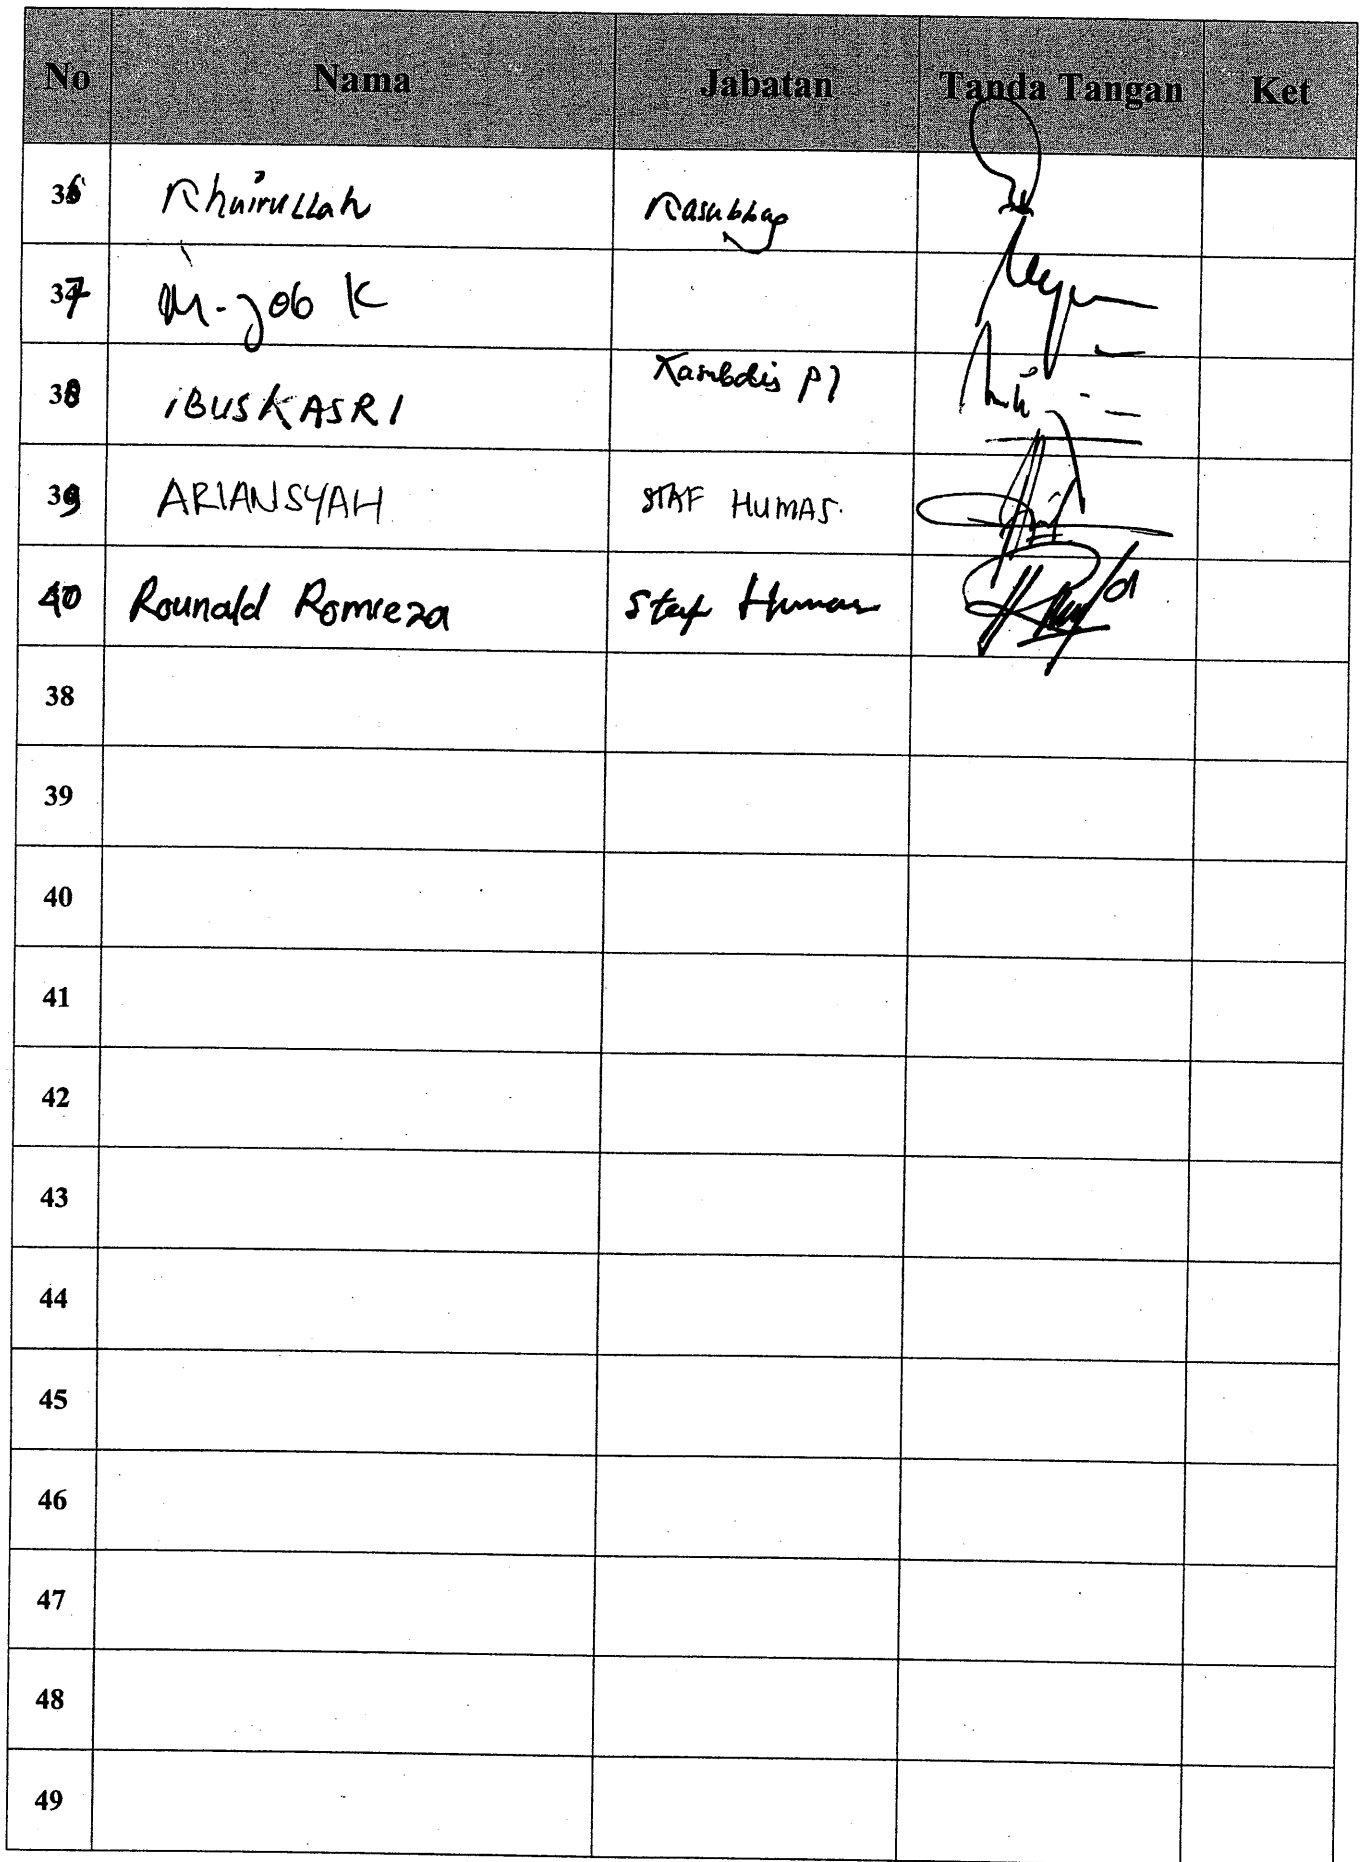 No Nama Jabatan Tanda Tangan Ket
36 Khairullah Kasubbag
37 M. Job K
38 IBUS KASRI Kasubdis P7
39 ARIANSYAH STAF HUMAS.
40 Rounald Romieza Staf Humas
38
39
40
41
42
43
44
45
46
47
48
49